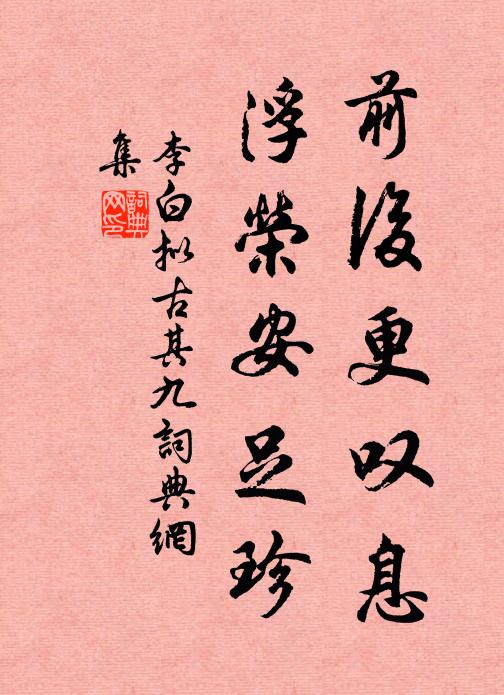 前後更叹息
浮榮安足珍
李白拟古其九詞典網
集
詞典
网印